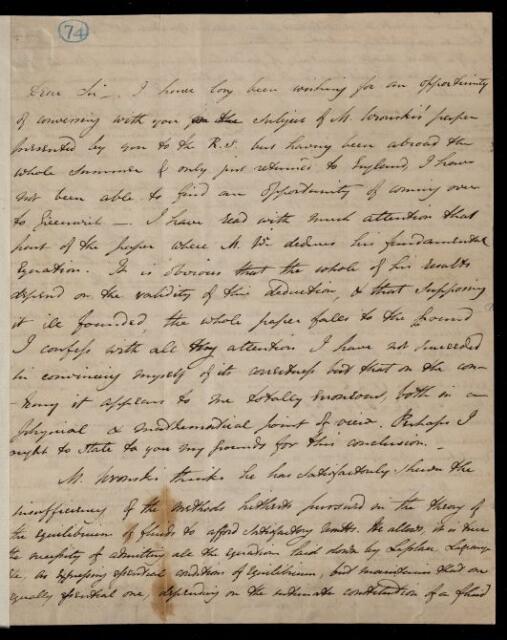 74
Dear Sir _ I have long been wishing for an opportunity
of conversing with you on the subject of M. Wronski's paper
presented by you to the R.S. but having been abroad the
whole summer & only just returned to England, I have
not been able to find an opportunity of coming over
to Greenwich _ I have read with much attention that
part of the paper where M. W. deduces his fundamental
Equation. It is obvious that the whole of his results
depend on the validity of this deduction, & that supposing
it ill founded, the whole paper falls to the ground
I confess with all my attention I have not succeeded
in convincing myself of its correctness but that on the con-
-trary it appears to me totally erroneous, both in a
physical & mathematical point of view. Perhaps I
ought to state to you my grounds for this conclusion. _
M. Wronski thinks he has satisfactorily shewn the
insufficiency of the methods hitherto pursued in the theory of
the equilibrium of fluids to afford satisfactory results. He allows, it is true
the necessity of admitting all the equations laid down by Laplace, Lagrange
&c, as expressing essential conditions of equilibrium, but maintains that one
equally essential one, depending on the intimate constitution of a fluid